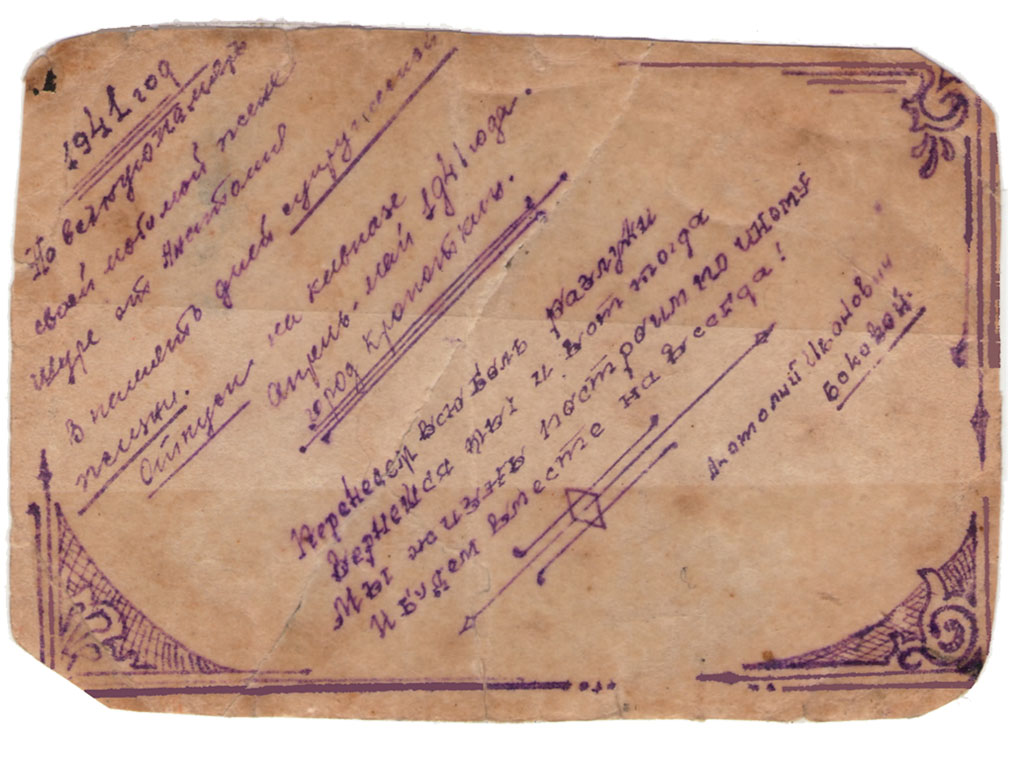 1941 год
На вечную память
своей любимой жене
Шуре от Анатолия
В память дней супружеской
жизни.
Отпуск на
Апрель-май 1941 года.
город Кропоткин.
Перенесём всю боль разлуки
Вернемся мы и вот тогда
Мы жизнь построим по иному
И будем вместе на всегда!
Анатолий
Боковой.